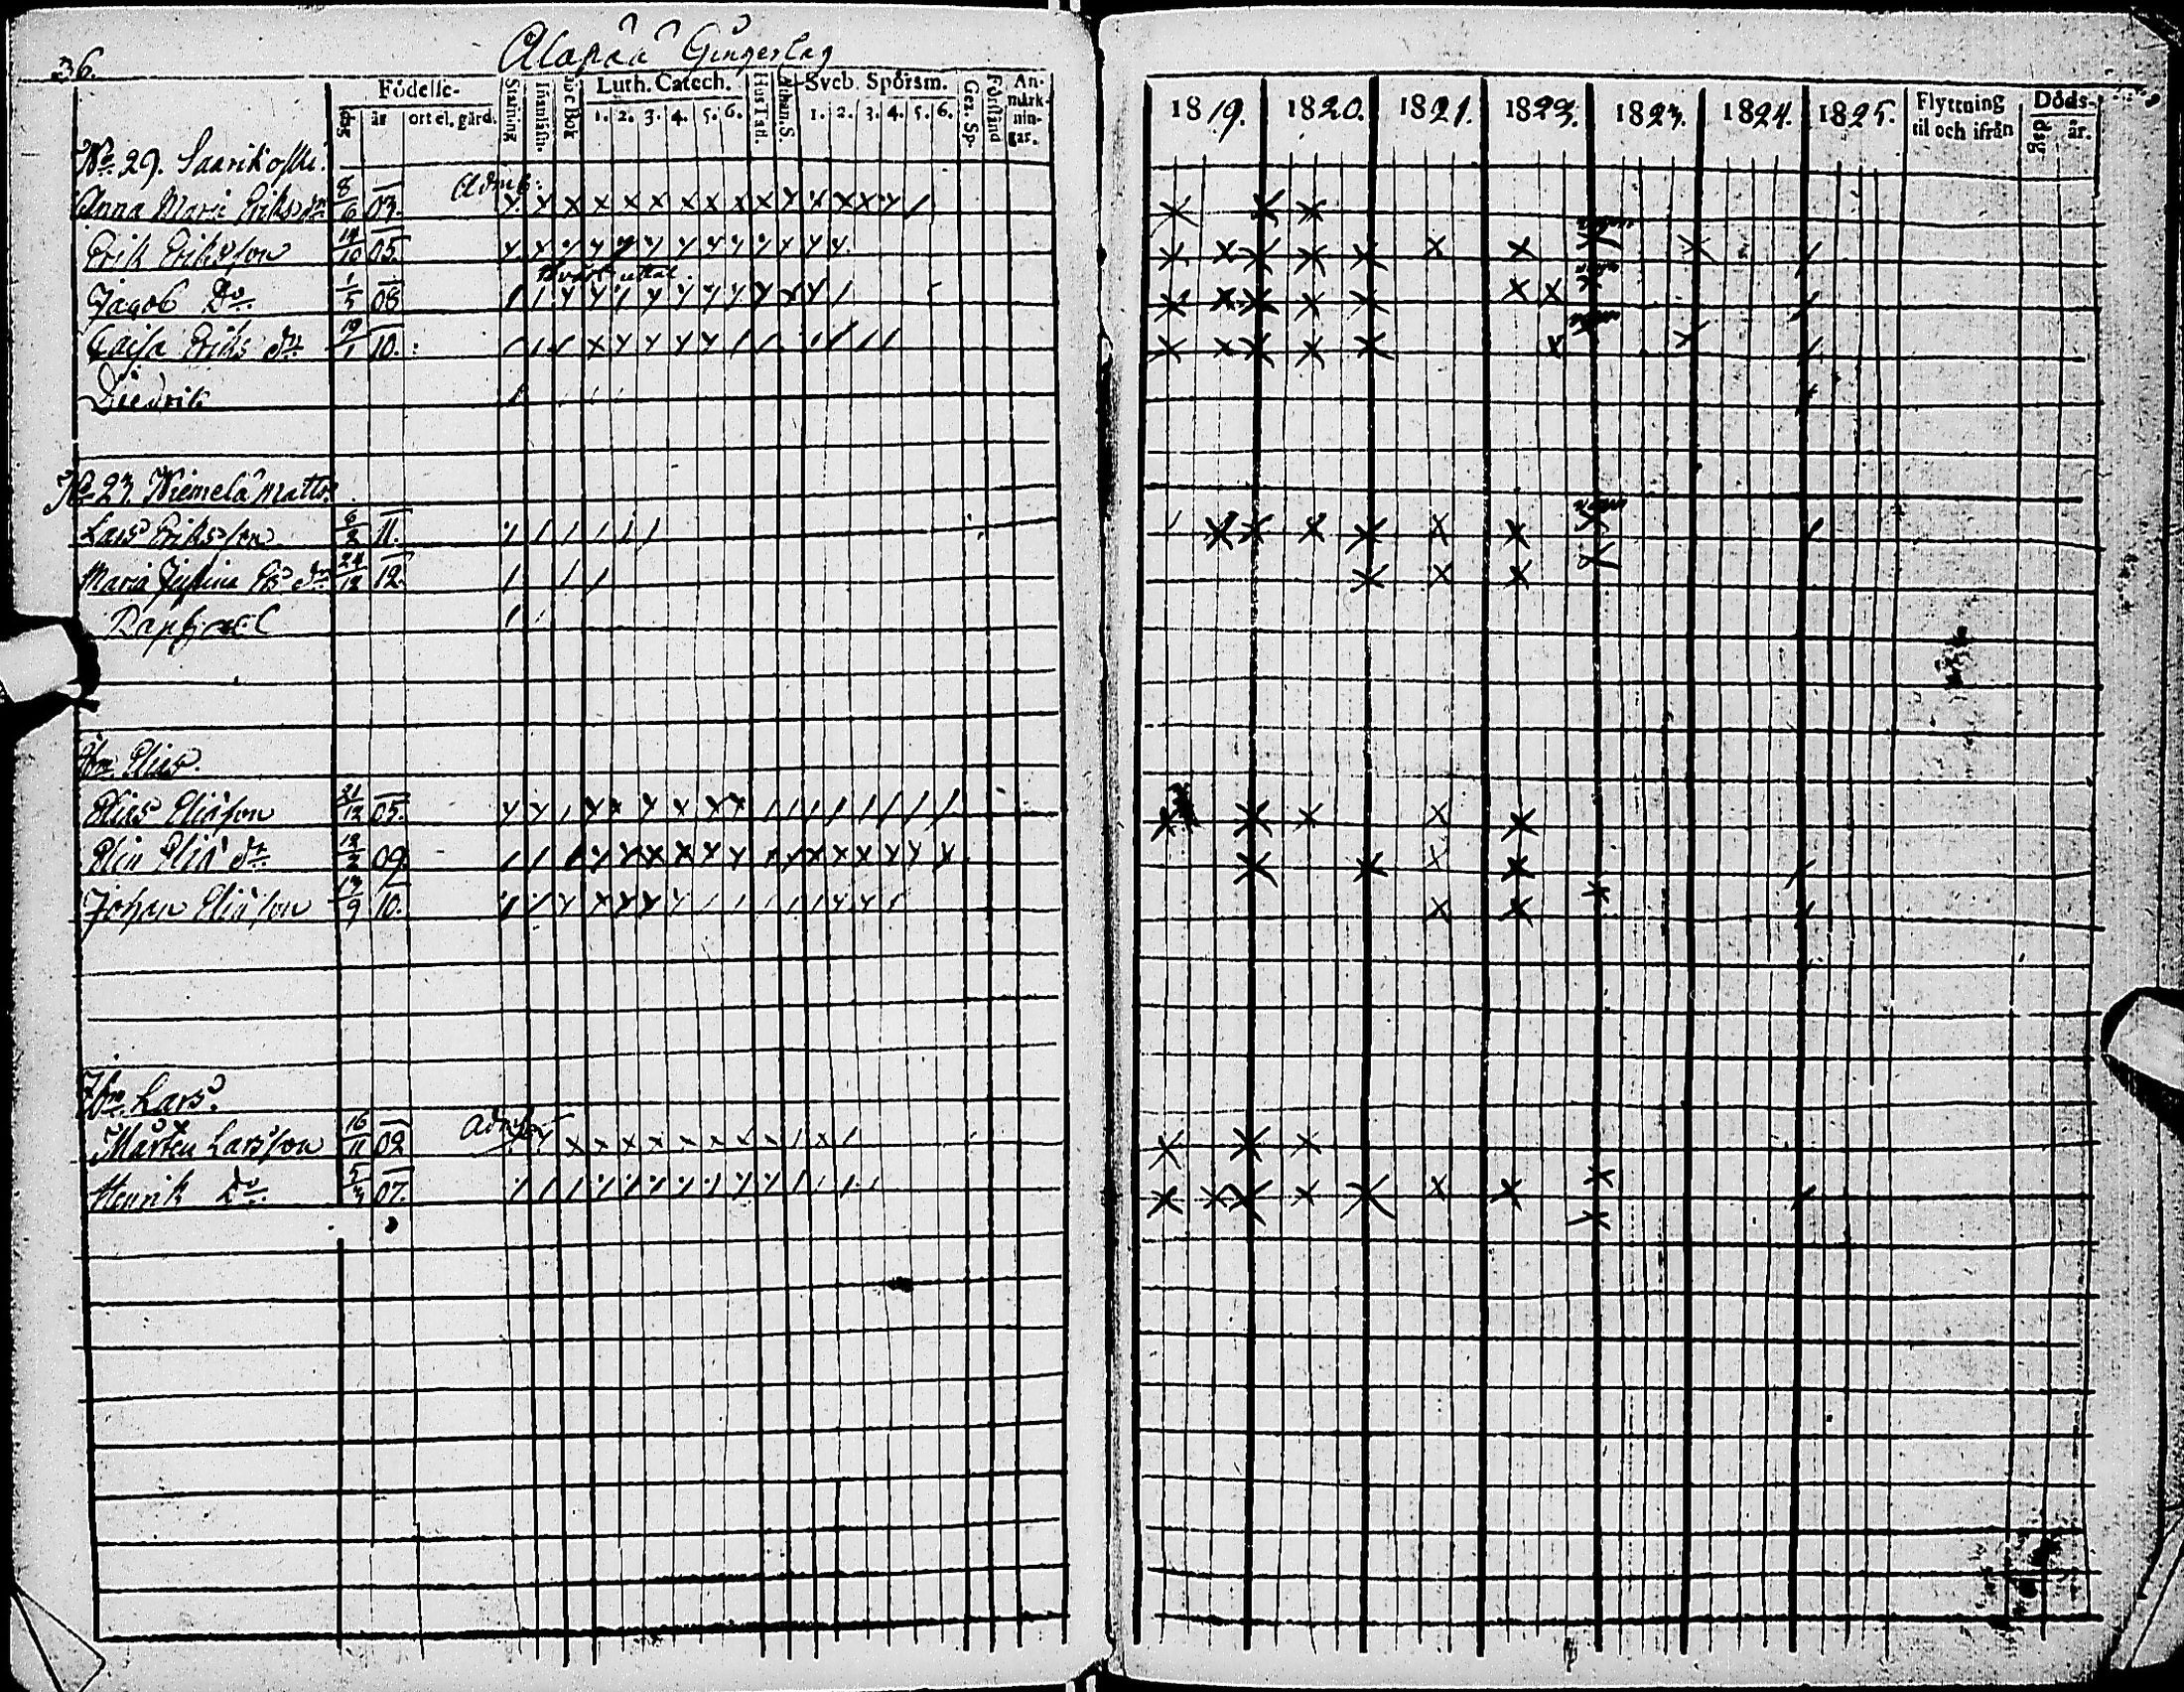 36.
Alapää Gingerlag
Födelse-
dag år ort el. gård.
Stafning Innanläsn. Luth. Catech. 1. 2. 3. 4. 5. 6. Hus Tafl. Athan. S. Sveb. Spörsm. 1. 2. 3. 4. 5. 6. Gez. Sp. Förstånd An-märk-nin-gar.
1819. 1820. 1821. 1822. 1823. 1824. 1825. Flyttning til och ifrån Döds- dag år.
No. 29. Saarikoski.
Anna Maria Eriks dr 8/6 03. Admb:
Erik Eriksson 14/10 05.
Jagob Do. 1/5 08
Caisa Eriks dr 19/1 10.
Diedrik
No 23. Niemelä Matts.
Lars Eriksson 6/2 11.
Maria Justina Ers dr 24/12 12.
Raphael
Hm Elias.
Elias Eliasson 21/12 05.
Elin Elia dr 12/2 09.
Johan Eliasson 13/9 10.
Hm Lars.
Mårten Larsson 16/11 02
Henrik Do. 5/3 07.